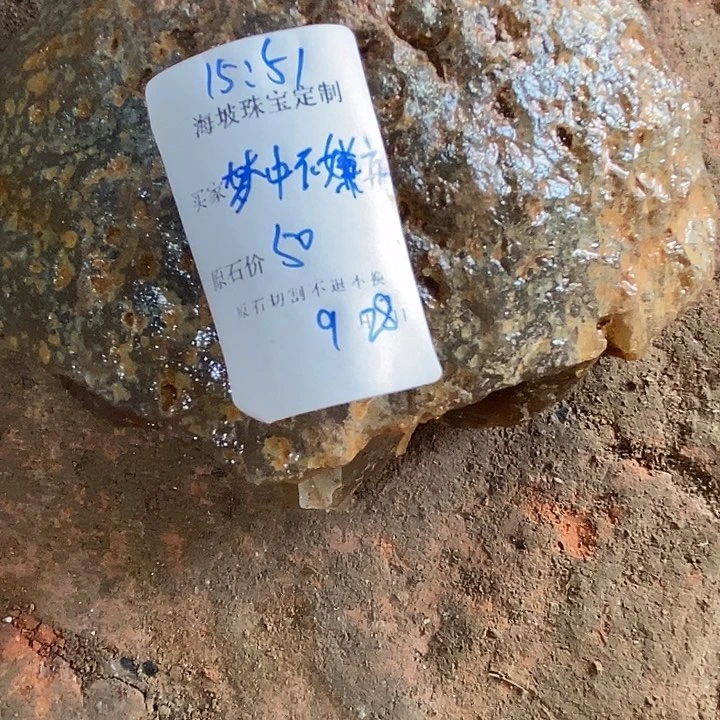 15:51
海坡珠宝定制
买家 梦中不嫌弃
原石价 50
原石切割不退不换
9月28日